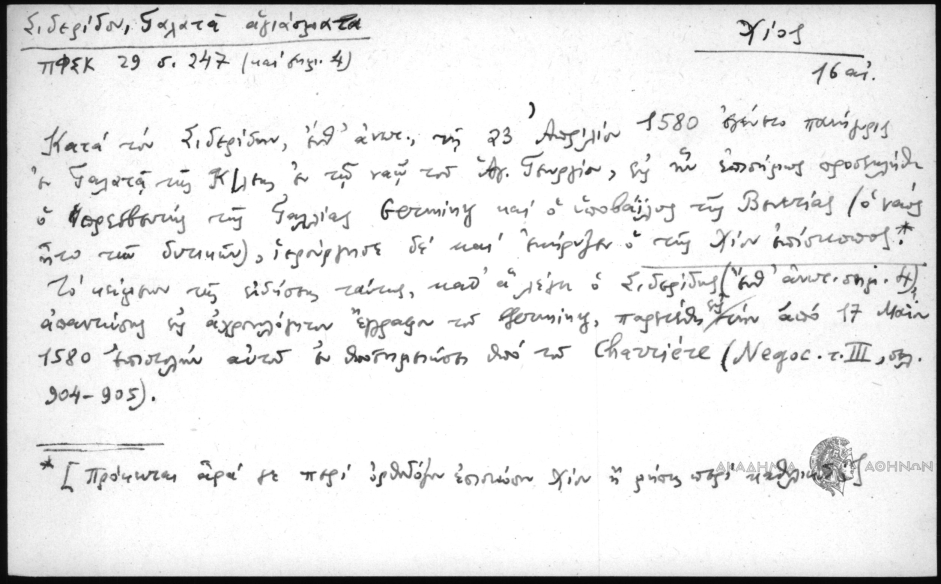 Σιδερίδου, Γαλατᾶ ἁγιάσματα
Χίος
ΠΦΣΚ 29 σ. 247 (καί σημ. 4)
16 αἰ.
Κατά τόν Σιδερίδην, ἔνθ' ἀνωτ., τῇ 23 Ἀπριλίου 1580 ἐγένετο πανήγυρις
ἐν Γαλατᾷ τῆς Κ/λεως ἐν τῷ ναῷ τοῦ Ἁγ. Γεωργίου, εἰς ἥν ἐπισήμως προσεκλήθη
ὁ πρεσβευτής τῆς Γαλλίας Germiny καί ὁ ὑποβάϊλος τῆς Βενετίας (ὁ ναός
ἦτο τῶν δυτικῶν), ἱερούργησε δέ καί ἐκήρυξεν ὁ τῆς Χίου ἐπίσκοπος.*
Τό κείμενον τῆς εἰδήσεως ταύτης, καθ' ἅ λέγει ὁ Σιδερίδης (ἔνθ' ἀνωτ. σημ. 4),
εἰς ἀχρονολόγητον ἔγγραφον τοῦ Germiny, εἰς τήν ἀπό 17 Μαΐου
1580 ἐπιστολήν αὐτοῦ ἐν ὑποσημειώσει ὑπό τοῦ Charrière (Negoc. τ. III, σελ.
904-905).
* [Πρόκειται ἆρά γε περί ὀρθοδόξου ἐπισκόπου Χίου ἤ περί καθολικοῦ;]
ΑΚΑΔΗΜΙΑ ΑΘΗΝΩΝ